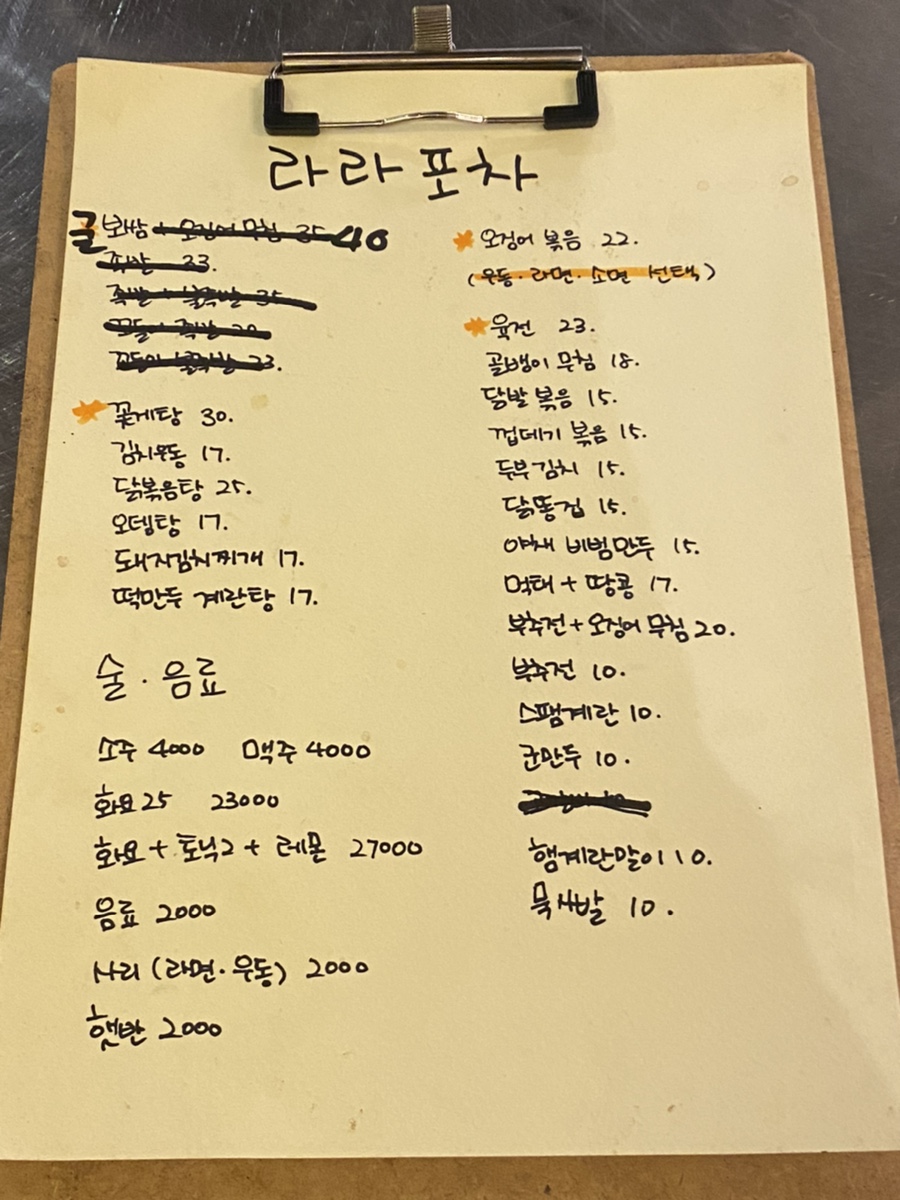 라라포차
굴보쌈 + 오징어무침 35 40
족발 23.
족발 + 불족발 35
23.
꽃게탕 30.
김치우동 17.
닭볶음탕 25.
오뎅탕 17.
돼지김치찌개 17.
떡만두 계란탕 17.
술 · 음료
소주 4000 맥주 4000
화요25 23000
화요 + 토닉2 + 레몬 27000
음료 2000
사리 (라면 · 우동) 2000
햇반 2000
오징어 볶음 22.
(우동 · 라면 · 소면 선택)
육전 23.
골뱅이 무침 18.
닭발 볶음 15.
껍데기 볶음 15.
두부김치 15.
닭똥집 15.
야채 비빔만두 15.
먹태 + 땅콩 17.
부추전 + 오징어 무침 20.
부추전 10.
스팸계란 10.
군만두 10.
햄계란말이 10.
묵사발 10.